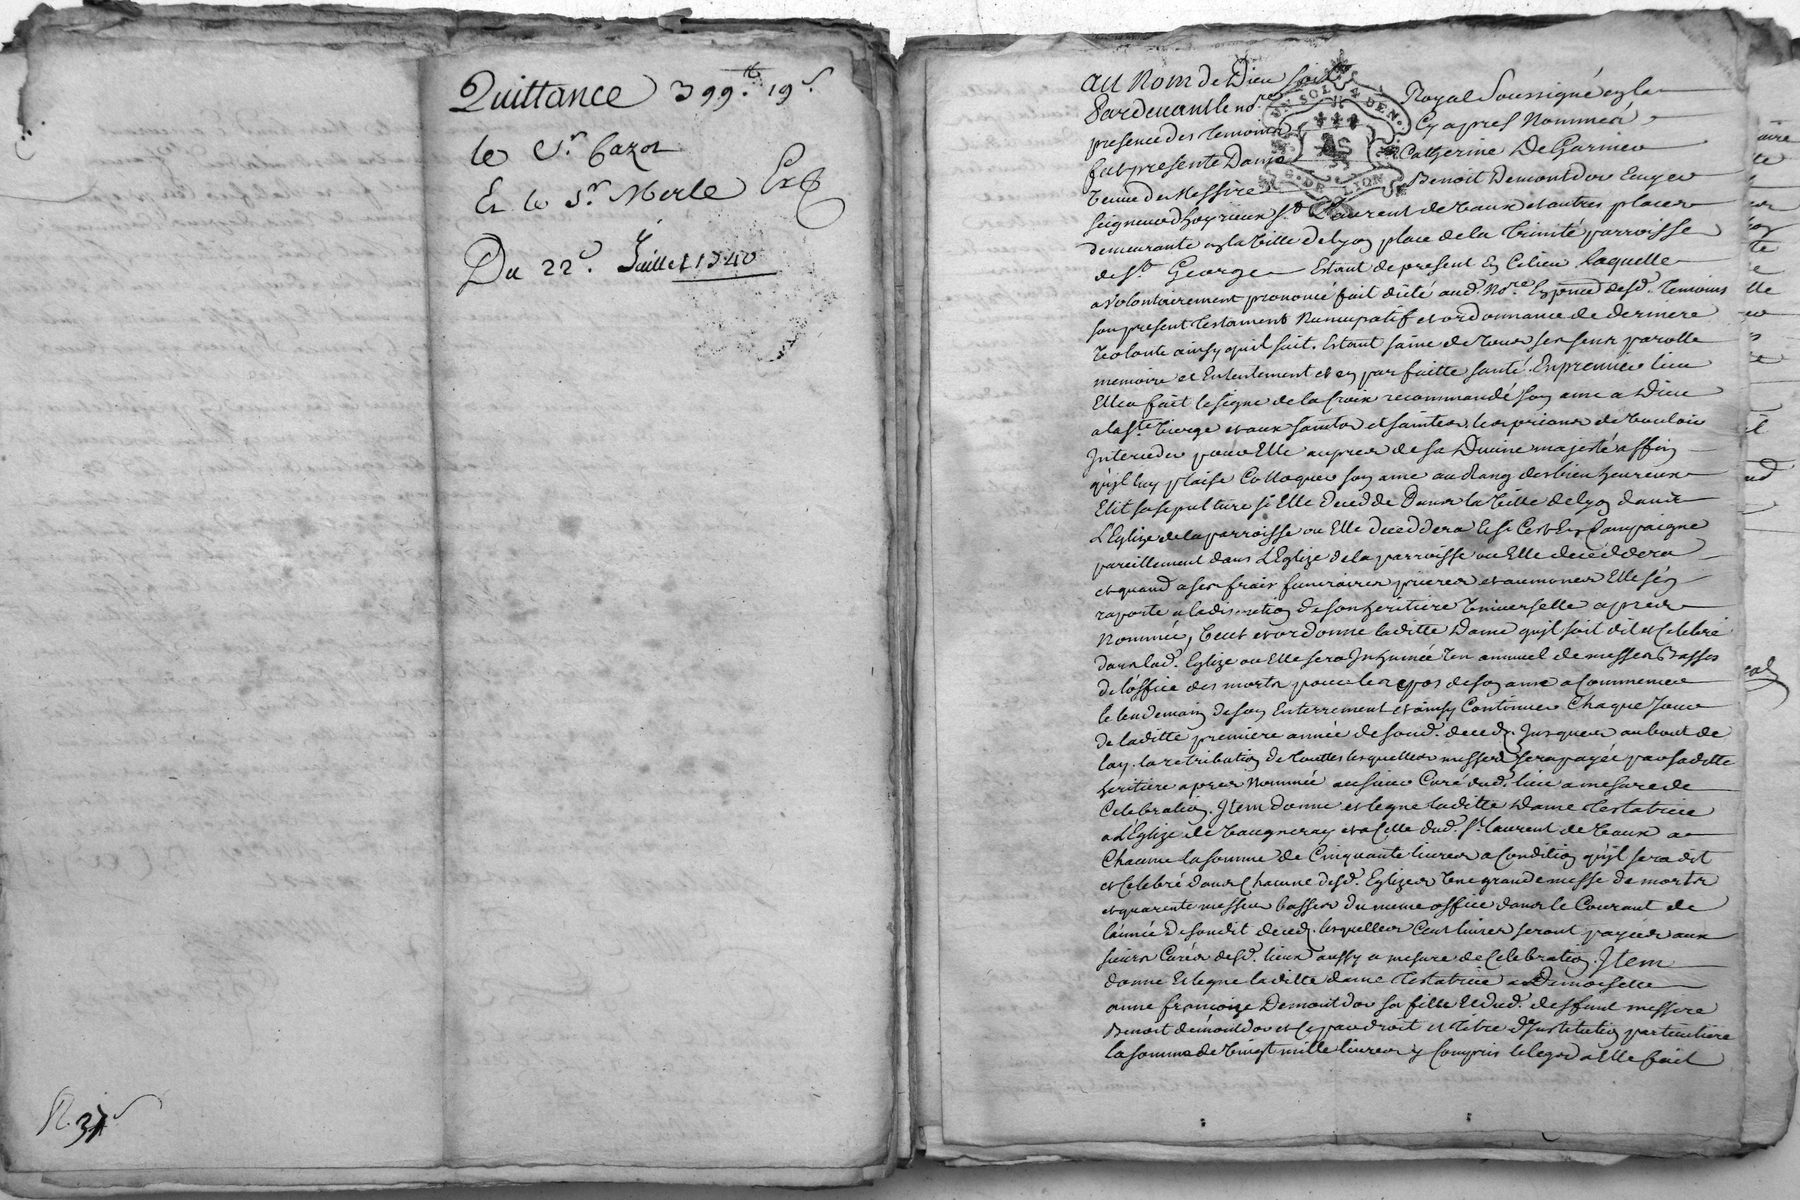 Quittance 399.ᵗᵗ 19.ˢ
le Sʳ. Cazot
Et le Sʳ. Merle
Du 22ᵉ. Juillet 1740
R. 37ˢ
au Nom de Dieu soit
Pardevant le noʳᵉ Royal Soussigné en la
presence des temoins Cy apres Nommés
fut presente Dame Catherine De Garnieu
veuve de Messire Benoit Demontdor Ecuyer
UN SOL 4 DEN.
G. DE LION
Seigneur d'hoyrieux Sᵗ Laurent de Vaux et autres places
demeurante en la Ville de Lyon place de la Trinité parroisse
de Sᵗ George Estant de present En Ce lieu Laquelle
a Volontairement prononcé fait dicté aud. Noʳᵉ En pñce desd. Temoins
son present testament Nuncupatif et ordonnance de derniere
Volonté ainsy quil suit. Estant saine de tous ses sens parolle
memoire et Entendement et en parfaitte santé. En premier lieu
Elle a fait le signe de la Croix recommandé son ame a Dieu
a la Sᵗᵉ Vierge et aux saints et saintes les priant de vouloir
Interceder pour Elle aupres de sa Divine majesté affin
qu'il luy plaise Colloquer son ame au Rang des bien heureux
Elit sa sepulture si Elle decedde Dans la Ville de Lyon dans
L'Eglize de la parroisse ou Elle deceddera Et si C'est En Campaigne
pareillement dans L'Eglize de la parroisse ou Elle deceddera
et quand a ses frais funeraires prieres et aumones Elle s'en
raporte a la discretion de son heritiere Universelle apres
Nommée, Veut et ordonne laditte Dame qu'il soit dit et Celebré
dans lad. Eglize ou Elle sera Inhumée Un annuel de messes Basses
de l'office des morts pour le repos de son ame a Commencer
le lendemain de son Enterrement et ainsy Continuer Chaque Jour
de laditte premiere année de sond. deced. Jusques au bout de
lan. la retribution de touttes lesquelles messes sera payée par saditte
heritiere apres Nommée au sieur Curé dud. lieu a mesure de
Celebration. Item donne et legue laditte Dame testatrice
a L'Eglize de Vaugneray et a Celle dud. Sᵗ Laurent de Vaux a
Chacune la somme de Cinquante livres a Condition qu'il sera dit
et Celebré dans Chacune desd. Eglizes Une grande messe de morts
et quarente messes basses du meme office dans le Courant de
l'année de sondit deced. lesquelles Cent livres seront payées aux
sieurs Curés desd. lieux aussy a mesure de Celebration. Item
donne Et legue laditte dame testatrice a Demoiselle
anne françoize Demontdor sa fille Et dud. deffunt messire
Benoit demontdor et Ce par droit et titre d'Institution particuliere
la somme de Vingt mille livres y Compris le legs a Elle fait